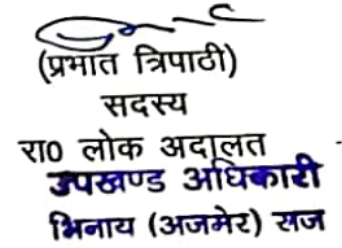 (प्रभात त्रिपाठी)
सदस्य
रा0 लोक अदालत
उपखण्ड अधिकारी
भिनाय (अजमेर) राज